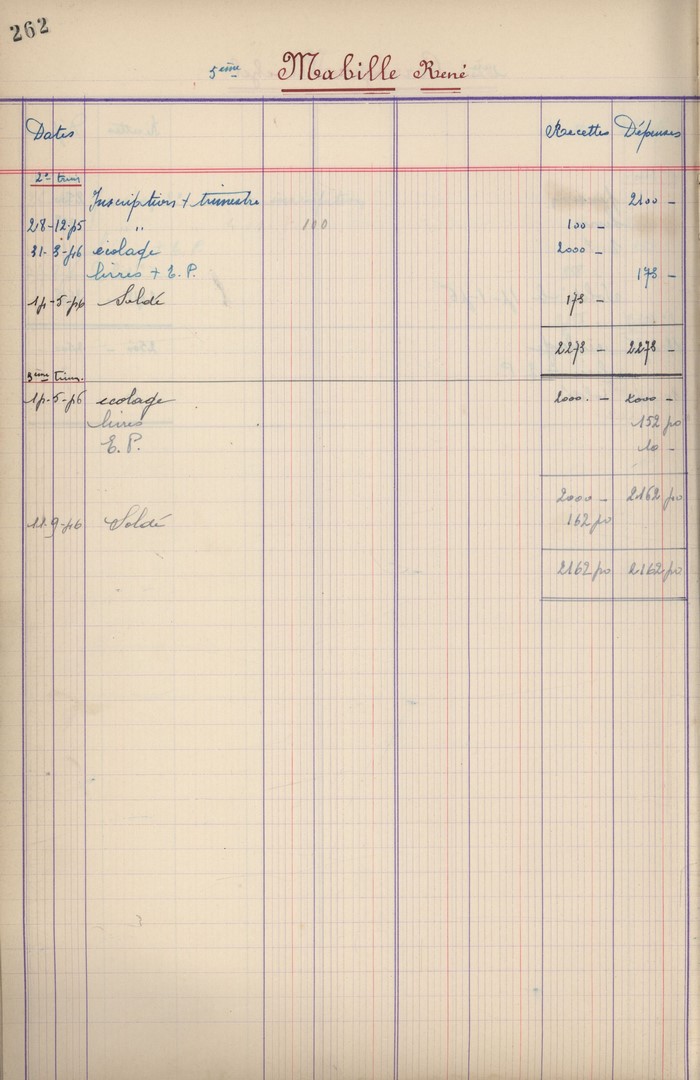 262
5ème Mabille René
Dates Recettes Dépenses
2e trim
Inscriptions + trimestre 2100 -
28-12-45 " 100 100 -
31-3-46 ecolage 2000 -
livres + E.P. 173 -
14-5-46 Soldé 173 -
2273 - 2273 -
3ème trim.
14-5-46 ecolage 2000. - 2000 -
livres 152 40
E.P. 10 -
2000 - 2162 40
11-9-46 Soldé 162 40
2162 40 2162 40